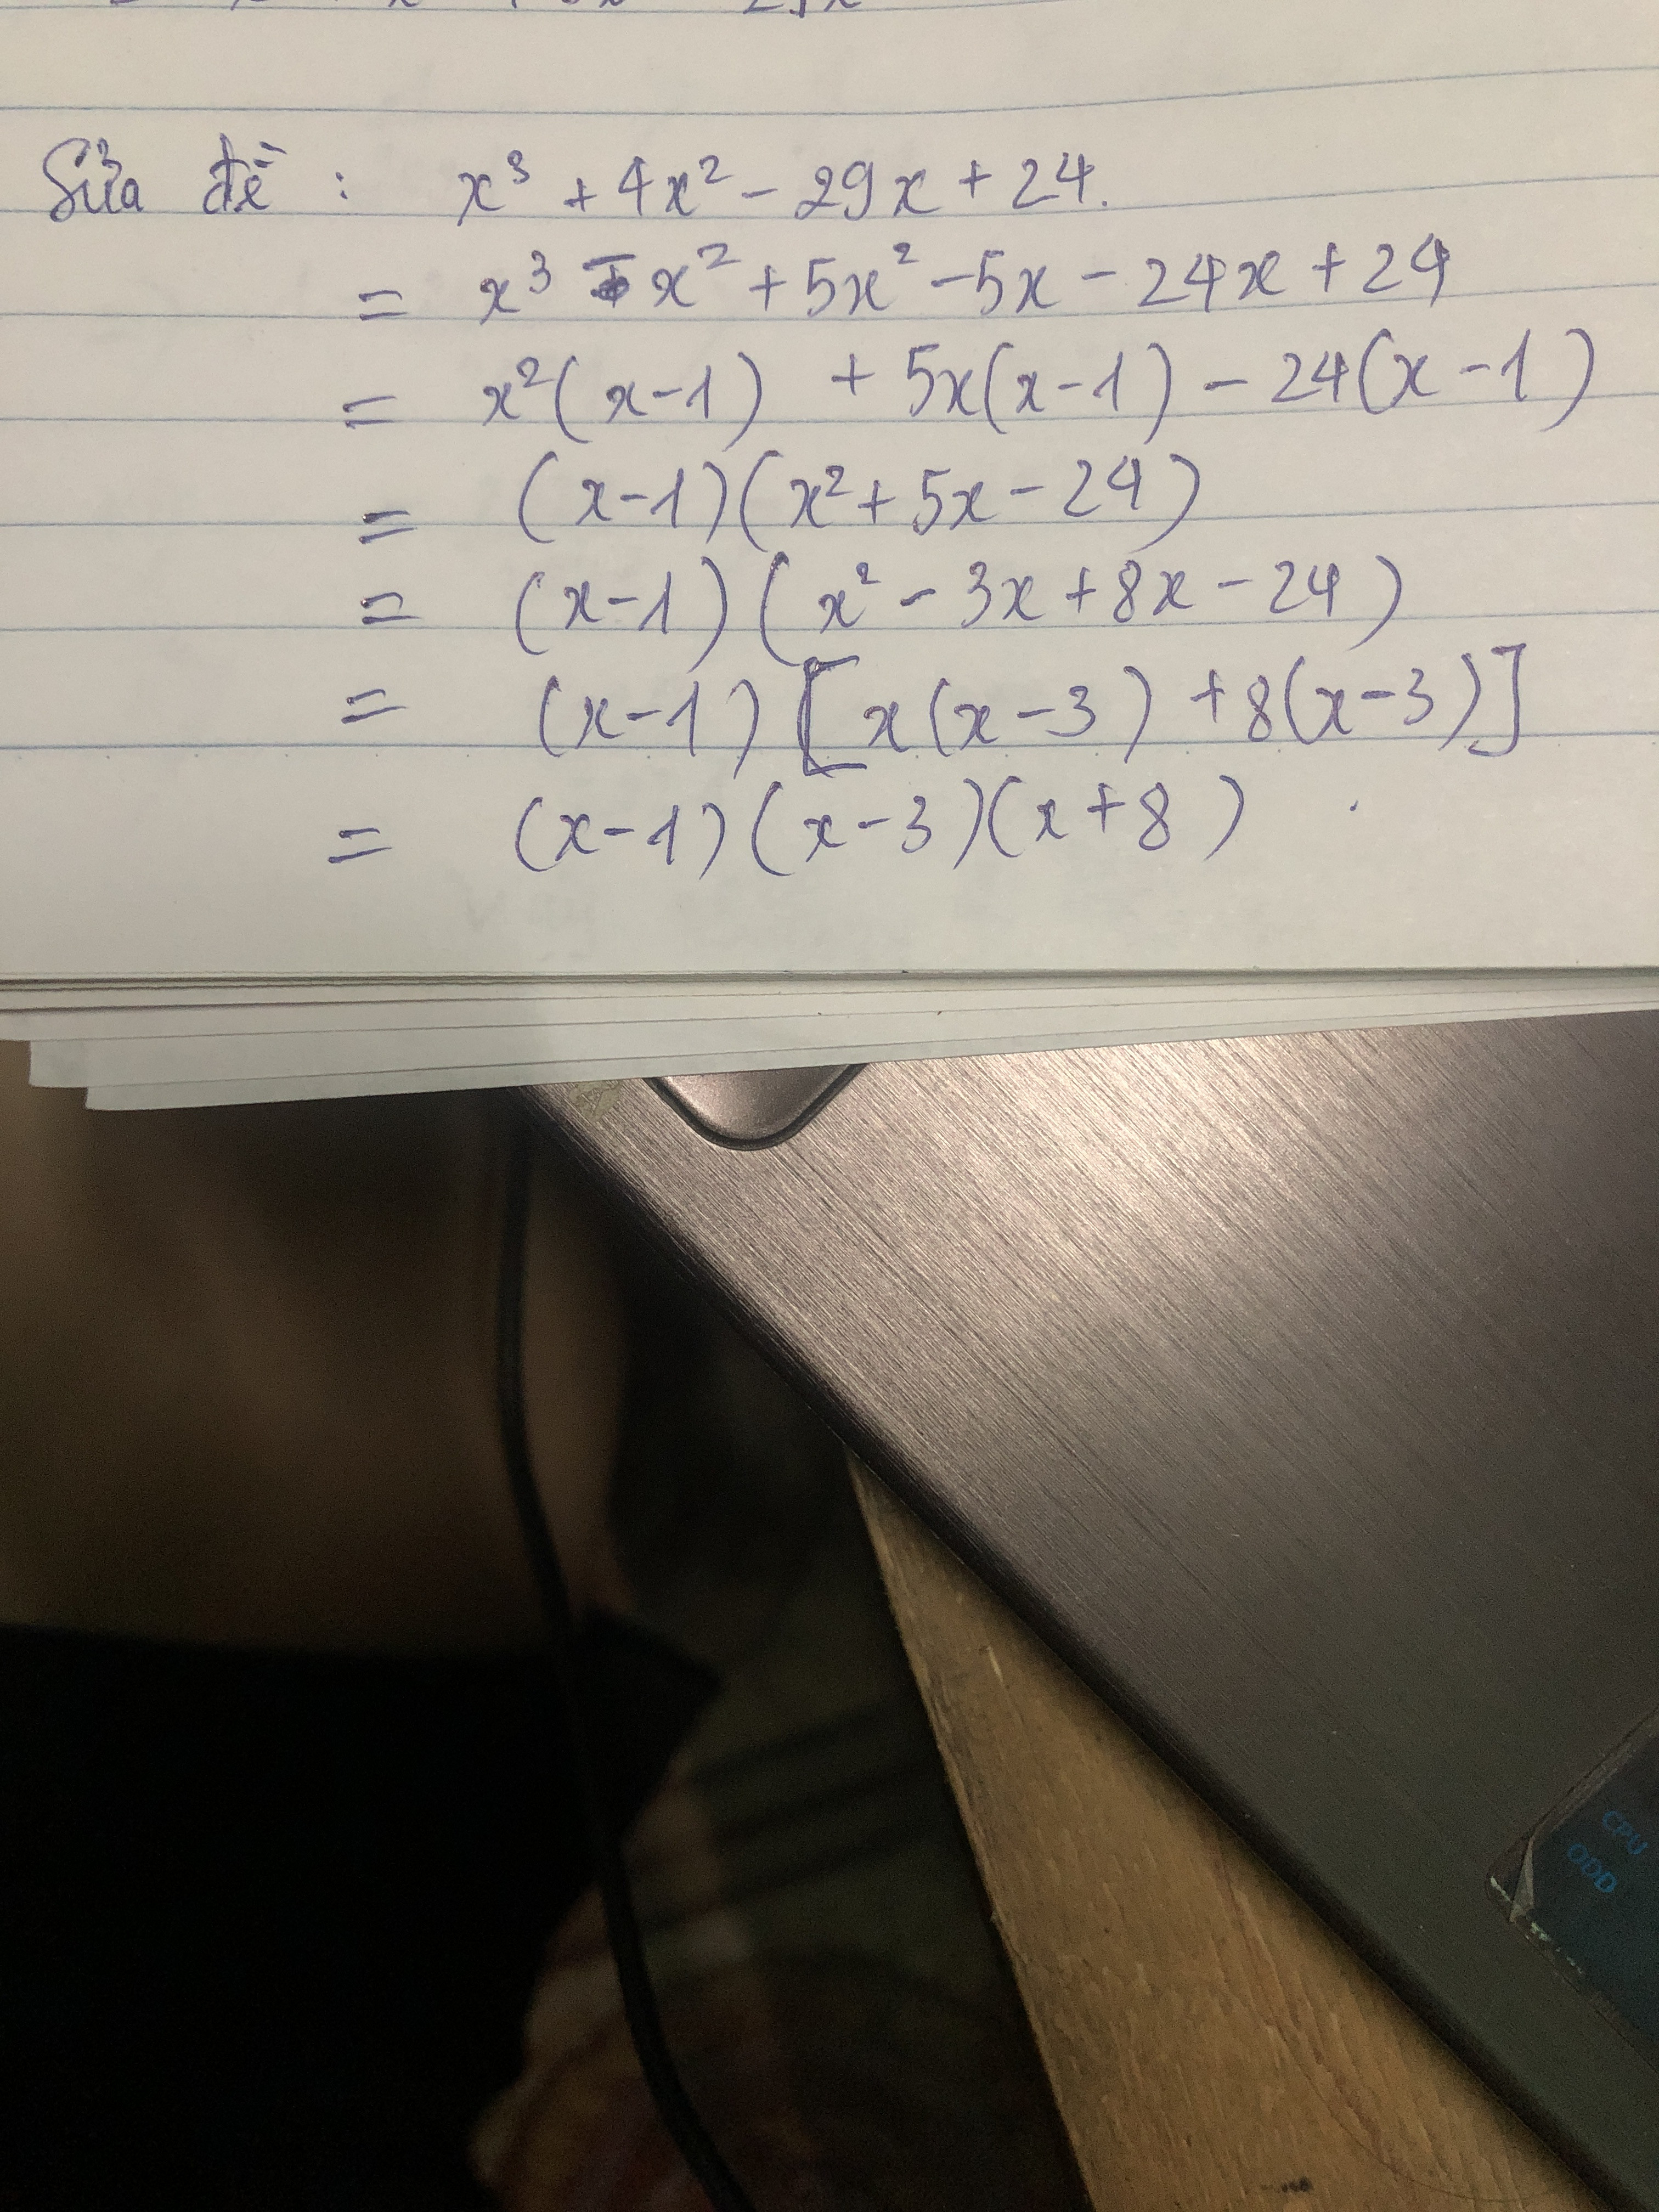 Sửa đề : x³ + 4x² - 29x + 24.
= x³ - x² + 5x² - 5x - 24x + 24
= x²(x-1) + 5x(x-1) - 24(x-1)
= (x-1)(x² + 5x - 24)
= (x-1)(x² - 3x + 8x - 24)
= (x-1)[x(x-3) + 8(x-3)]
= (x-1)(x-3)(x+8)
CPU
ODD